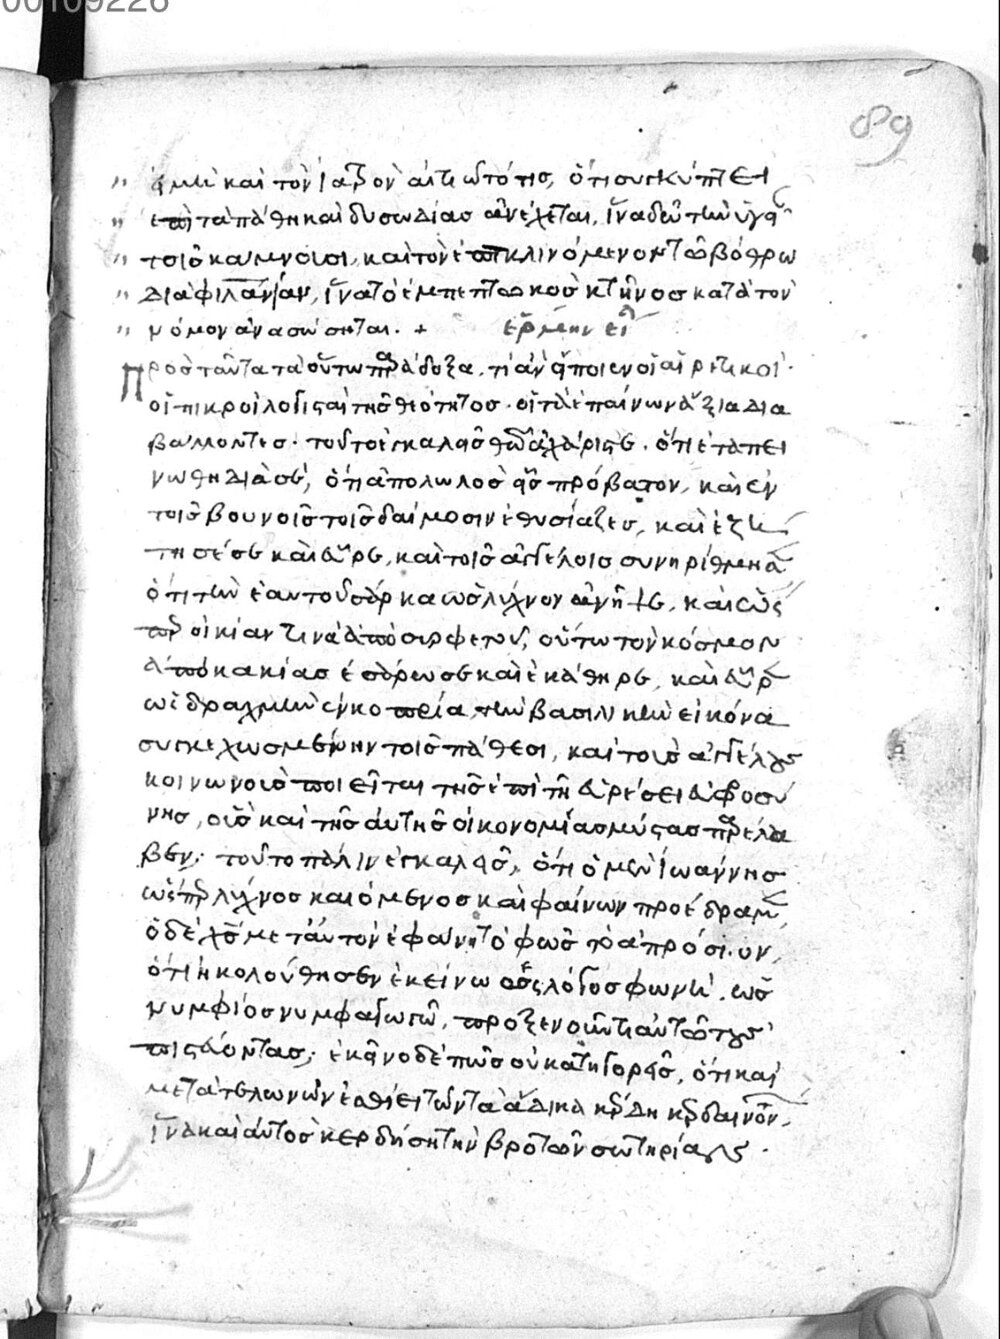 00109226
89
εἰ μὴ καὶ τὸν ἰατρὸν αἰτιῶτό τις, ὅτι συγκύπτει
ἐπὶ τὰ πάθη καὶ δυσωδίας ἀνέχεται, ἵνα δῷ τὴν ὑγεί
τοῖς κάμνουσι, καὶ τὸν ἐπικλινόμενον τῷ βόθρῳ
διὰ φιλανίαν, ἵνα τὸ ἐμπεπτωκὸς κτῆνος κατὰ τὸν
νόμον ἀνασώσηται. + ἑρμην
Πρὸς ταῦτα τὰ οὕτω παράδοξα, τί ἂν εἴποιεν οἱ αἱρετικοὶ.
οἱ πικροὶ λογισταὶ τῆς θεότητος. οἱ τὰ ἐπαίνων ἄξια δια
βάλλοντες. τοῦτο ἐγκαλεῖς θεῷ ἀχάριστε. ὅτι ἐταπει
νώθη διὰ σέ, ὅτι ἀπολωλὸς εἰς πρόβατον, καὶ ἐν
τοῖς βουνοῖς τοῖς δαίμοσιν ἐθυσίαζες, καὶ ἐζή
τησέ σε καὶ εὗρε, καὶ τοῖς ἀγγέλοις συνηρίθμησ
ὅτι τὴν ἑαυτοῦ σάρκα ὡς λύχνον ἀνῆψε, καὶ ὡς
οἰκίαν τινὰ ἀπὸ συρφετοῦ, οὕτω τὸν κόσμον
ἀπὸ κακίας ἐσάρωσε καὶ ἐκάθηρε, καὶ εὗρ
ὡς δραχμὴν ἐν κοπρίᾳ, τὴν βασιλικὴν εἰκόνα
συγκεχωσμένην τοῖς πάθεσι, καὶ τοὺς ἀγγέλους
κοινωνοὺς ποιεῖται τῆς ἐπὶ τῇ εὑρέσει εὐφροσύ
νης, οὓς καὶ τῆς αὐτῆς οἰκονομίας μύστας παρέλα
βεν; τοῦτο πάλιν ἐγκαλεῖς, ὅτι ὁ μὲν Ἰωάννης
ὥσπερ λύχνος καιόμενος καὶ φαίνων προέδραμ
ὁ δὲ χς μετ' αὐτὸν ἐφαίνετο φῶς τὸ ἀπρόσιτον,
ὅτι ἠκολούθησεν ἐκείνῳ ὡς λόγος φωνῇ, ὡς
νυμφίος νυμφαγωγῷ, προξενοῦντι αὐτῷ τοὺς
πιστεύοντας; ἐκεῖνο δὲ πῶς οὐ κατηγορεῖς, ὅτι καὶ
μετὰ τελωνῶν ἐσθίει τῶν τὰ ἄδικα κέρδη κερδαινόν,
ἵνα καὶ αὐτὸς κερδήσῃ τὴν βροτῶν σωτηρίαν;